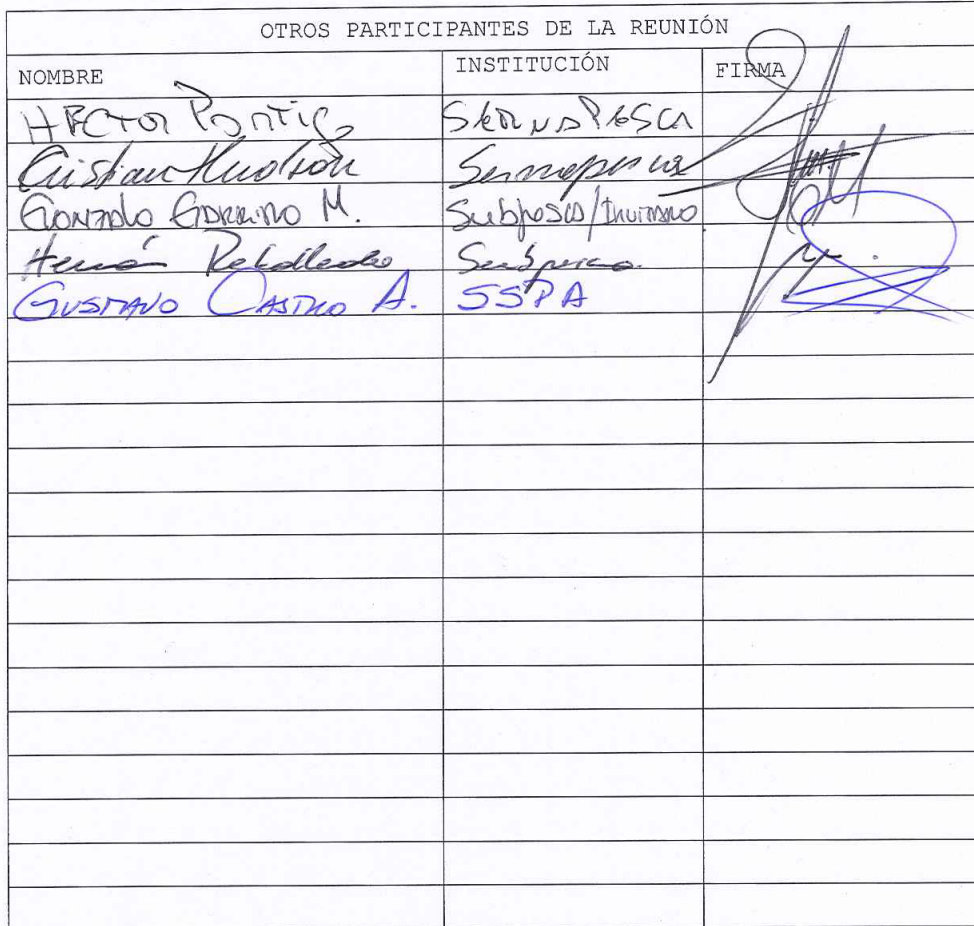 OTROS PARTICIPANTES DE LA REUNIÓN
NOMBRE INSTITUCIÓN FIRMA
HECTOR SERNAPESCA
Cristian Hudson Sernapesca
GONZALO GARRIDO M. Subpesca/
Hernán Rebolledo Subpesca.
GUSTAVO CASTRO A. SSPA